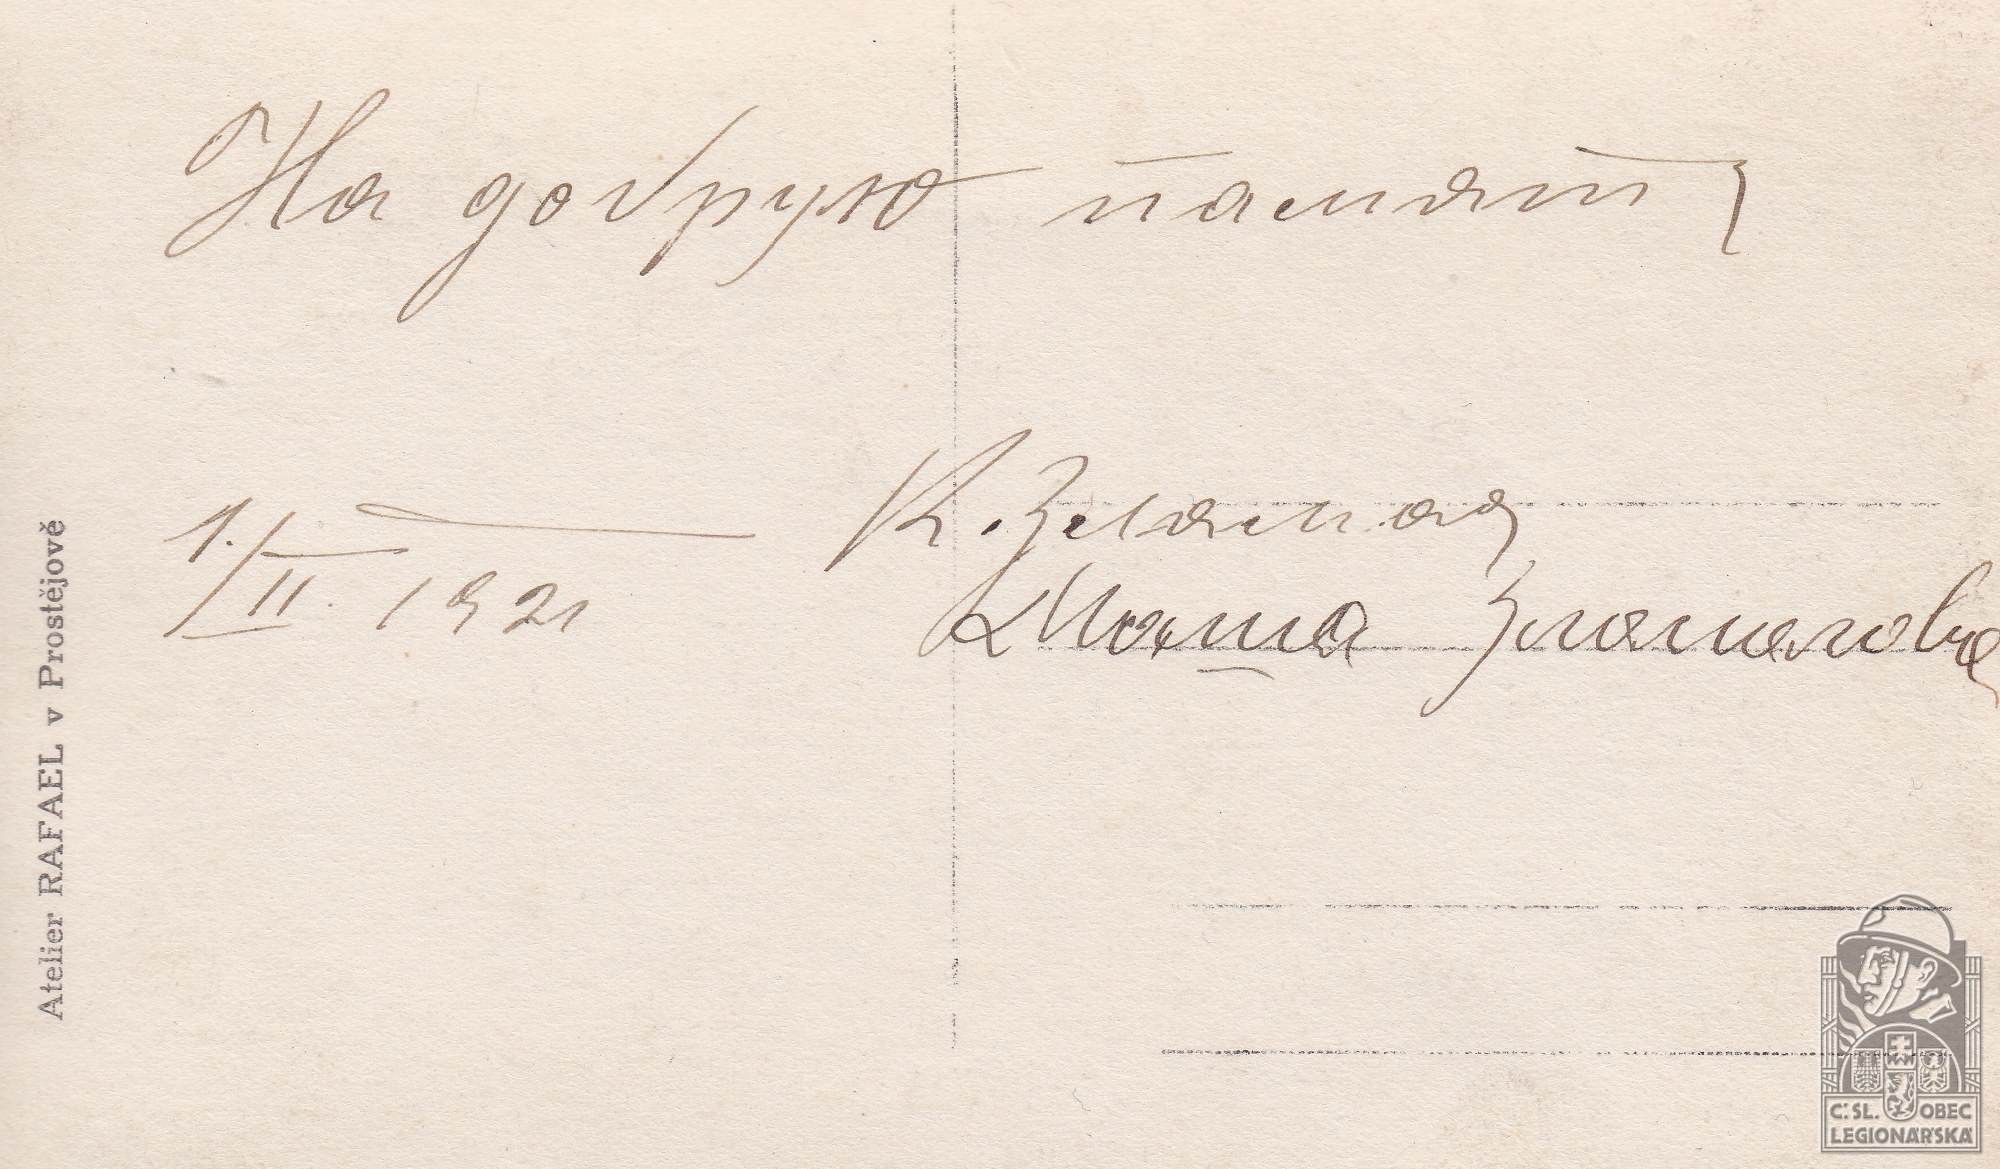 На добрую память
1./II. 1921
К. Зламал
Маша Зламалова
Atelier RAFAEL v Prostějově
Č.SL. OBEC
LEGIONÁŘSKÁ